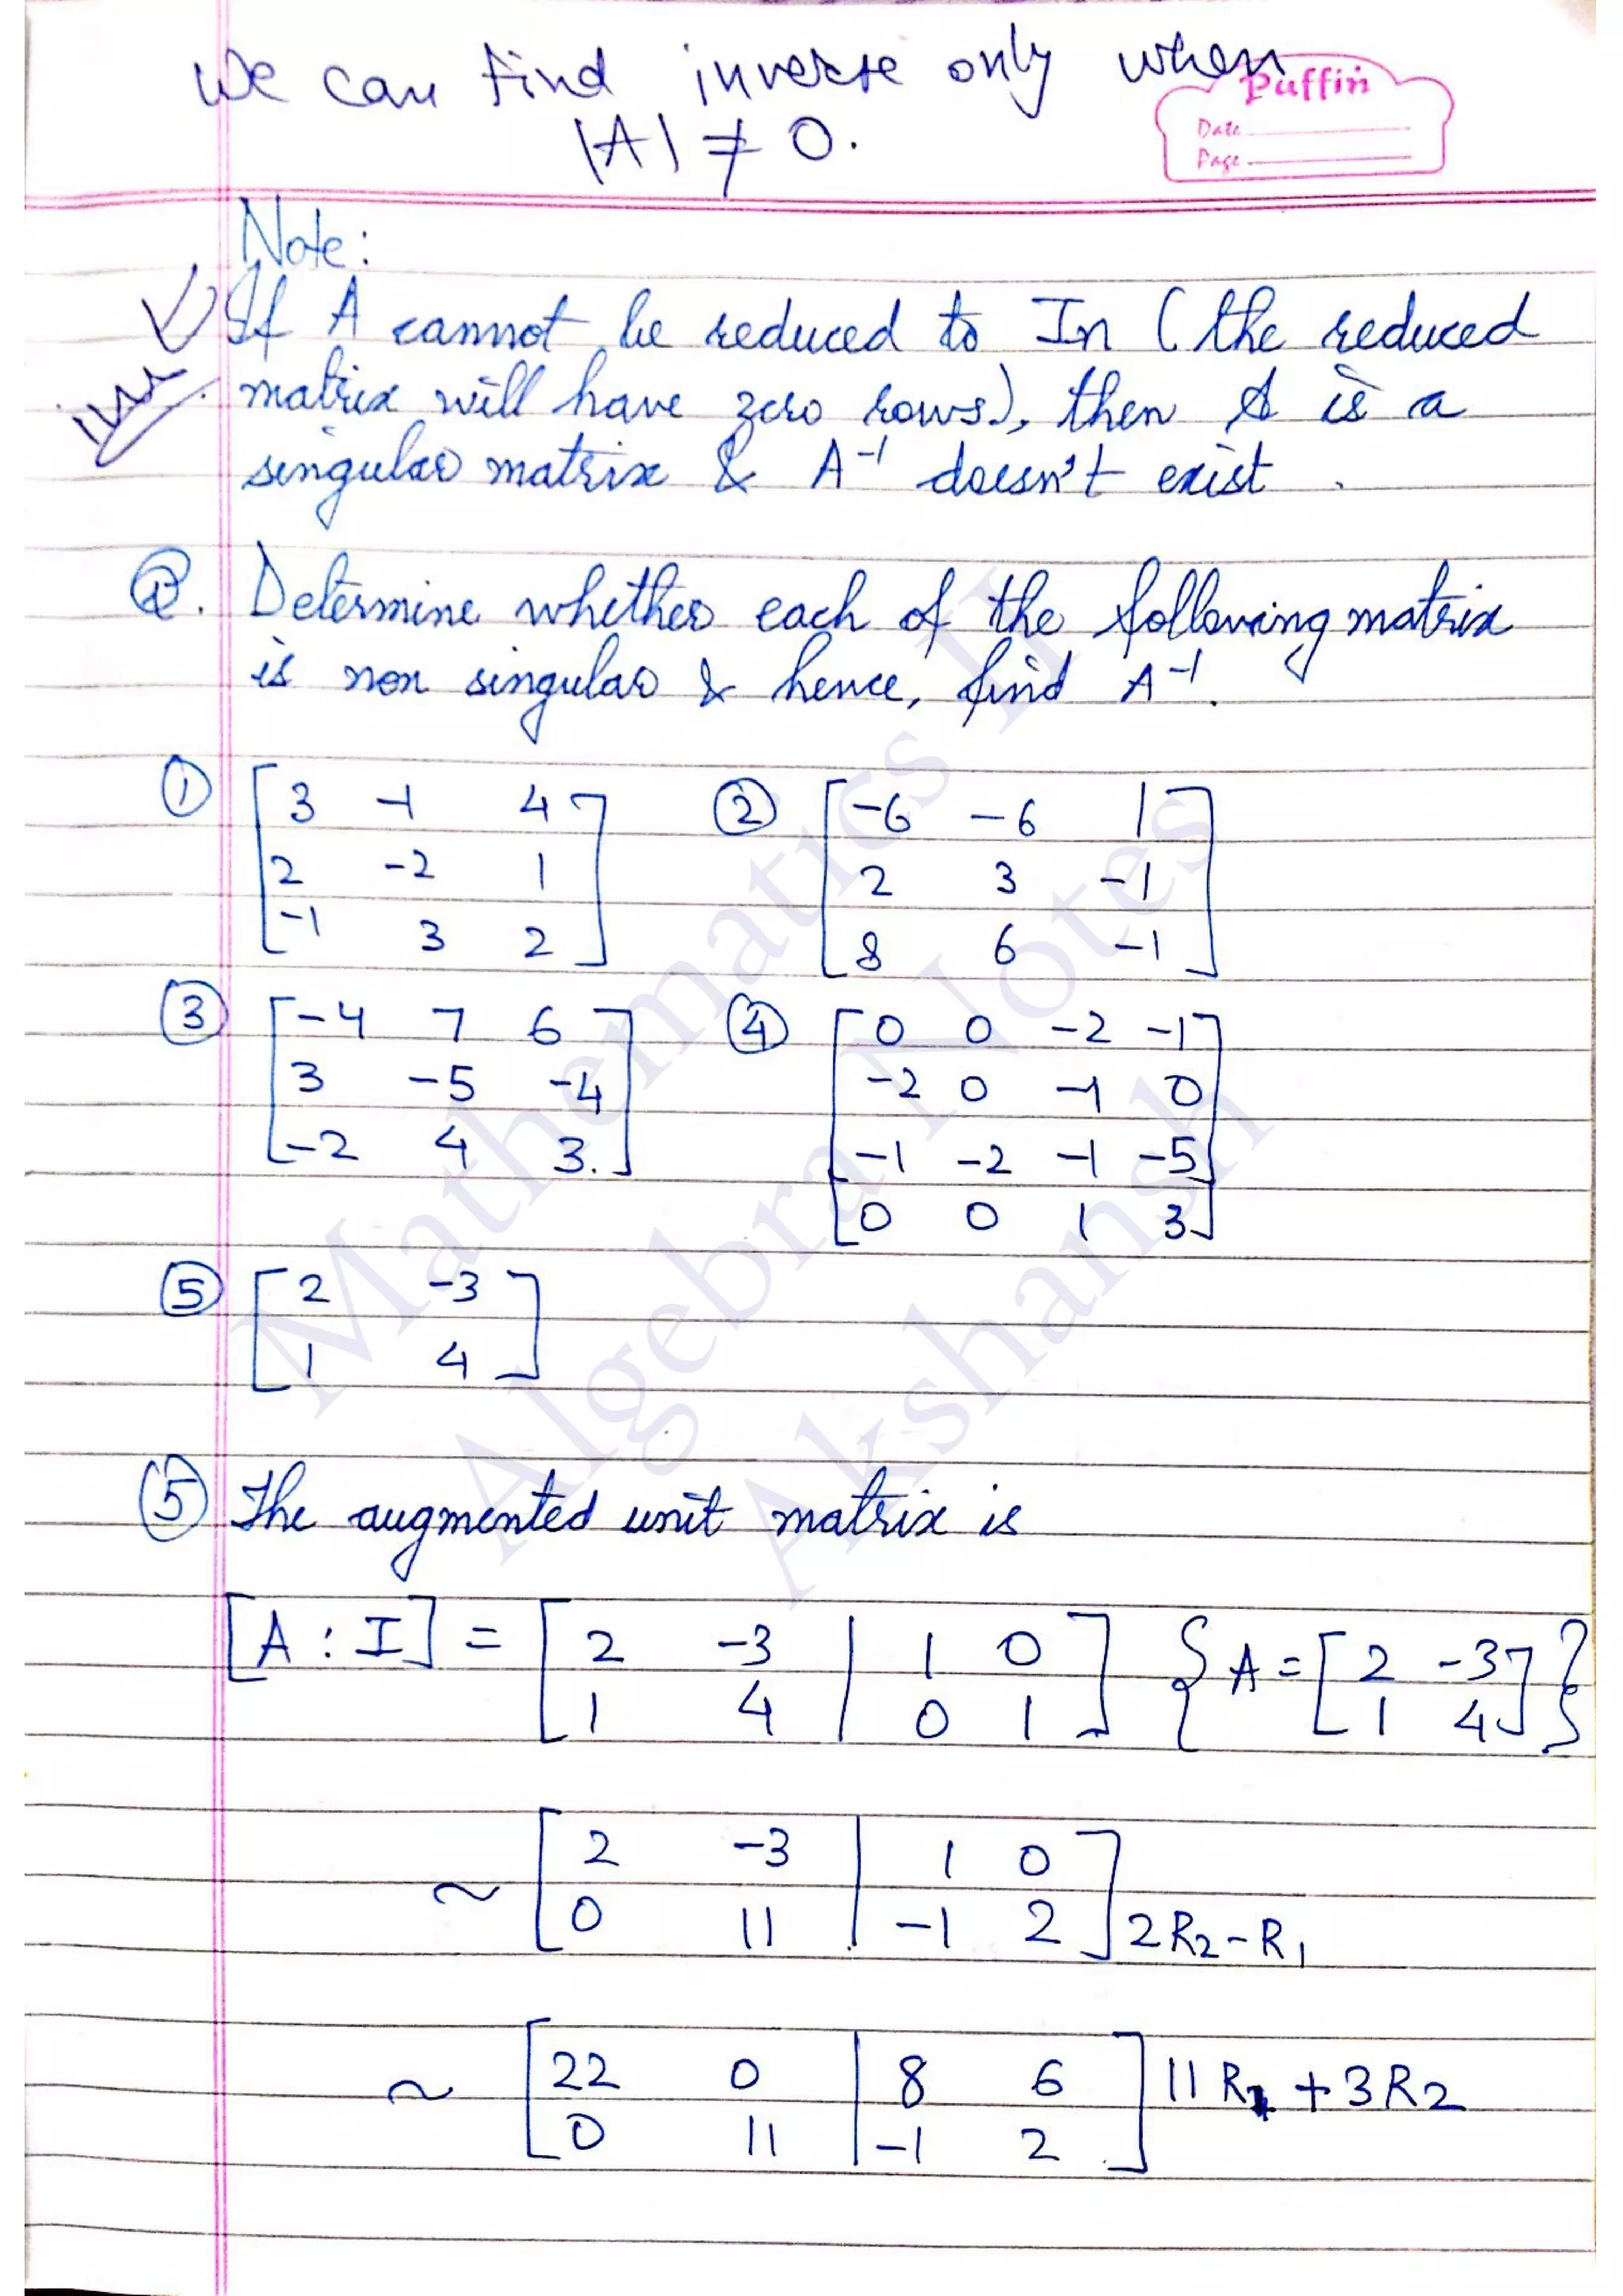 We can find inverse only when
|A| ≠ 0.
Puffin
Date
Page
Note:
If A cannot be reduced to In (the reduced
matrix will have zero rows), then A is a
singular matrix & A⁻¹ doesn't exist.
Q. Determine whether each of the following matrix
is non singular & hence, find A⁻¹.
① [3 -1 4
2 -2 1
-1 3 2]
② [-6 -6 1
2 3 -1
8 6 -1]
③ [-4 7 6
3 -5 -4
-2 4 3.]
④ [0 0 -2 -1
-2 0 -1 0
-1 -2 -1 -5
0 0 1 3]
⑤ [2 -3
1 4]
⑤ The augmented unit matrix is
[A : I] = [2 -3 | 1 0
1 4 | 0 1] {A = [2 -3
1 4]}
~ [2 -3 | 1 0
0 11 | -1 2] 2R₂-R₁
~ [22 0 | 8 6
0 11 | -1 2] 11R₁ + 3R2
Mathematics II
Algebra Notes
Akshansh